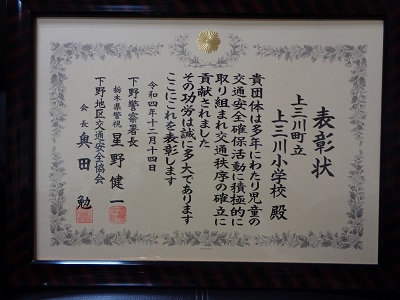 表彰状
上三川町立
上三川小学校 殿
貴団体は多年にわたり児童の
交通安全確保活動に積極的に
取り組まれ交通秩序の確立に
貢献されました
その功労は誠に多大であります
ここにこれを表彰します
令和四年十二月十四日
下野警察署長
栃木県警視 星野健一
下野地区交通安全協会
会長 奥田勉